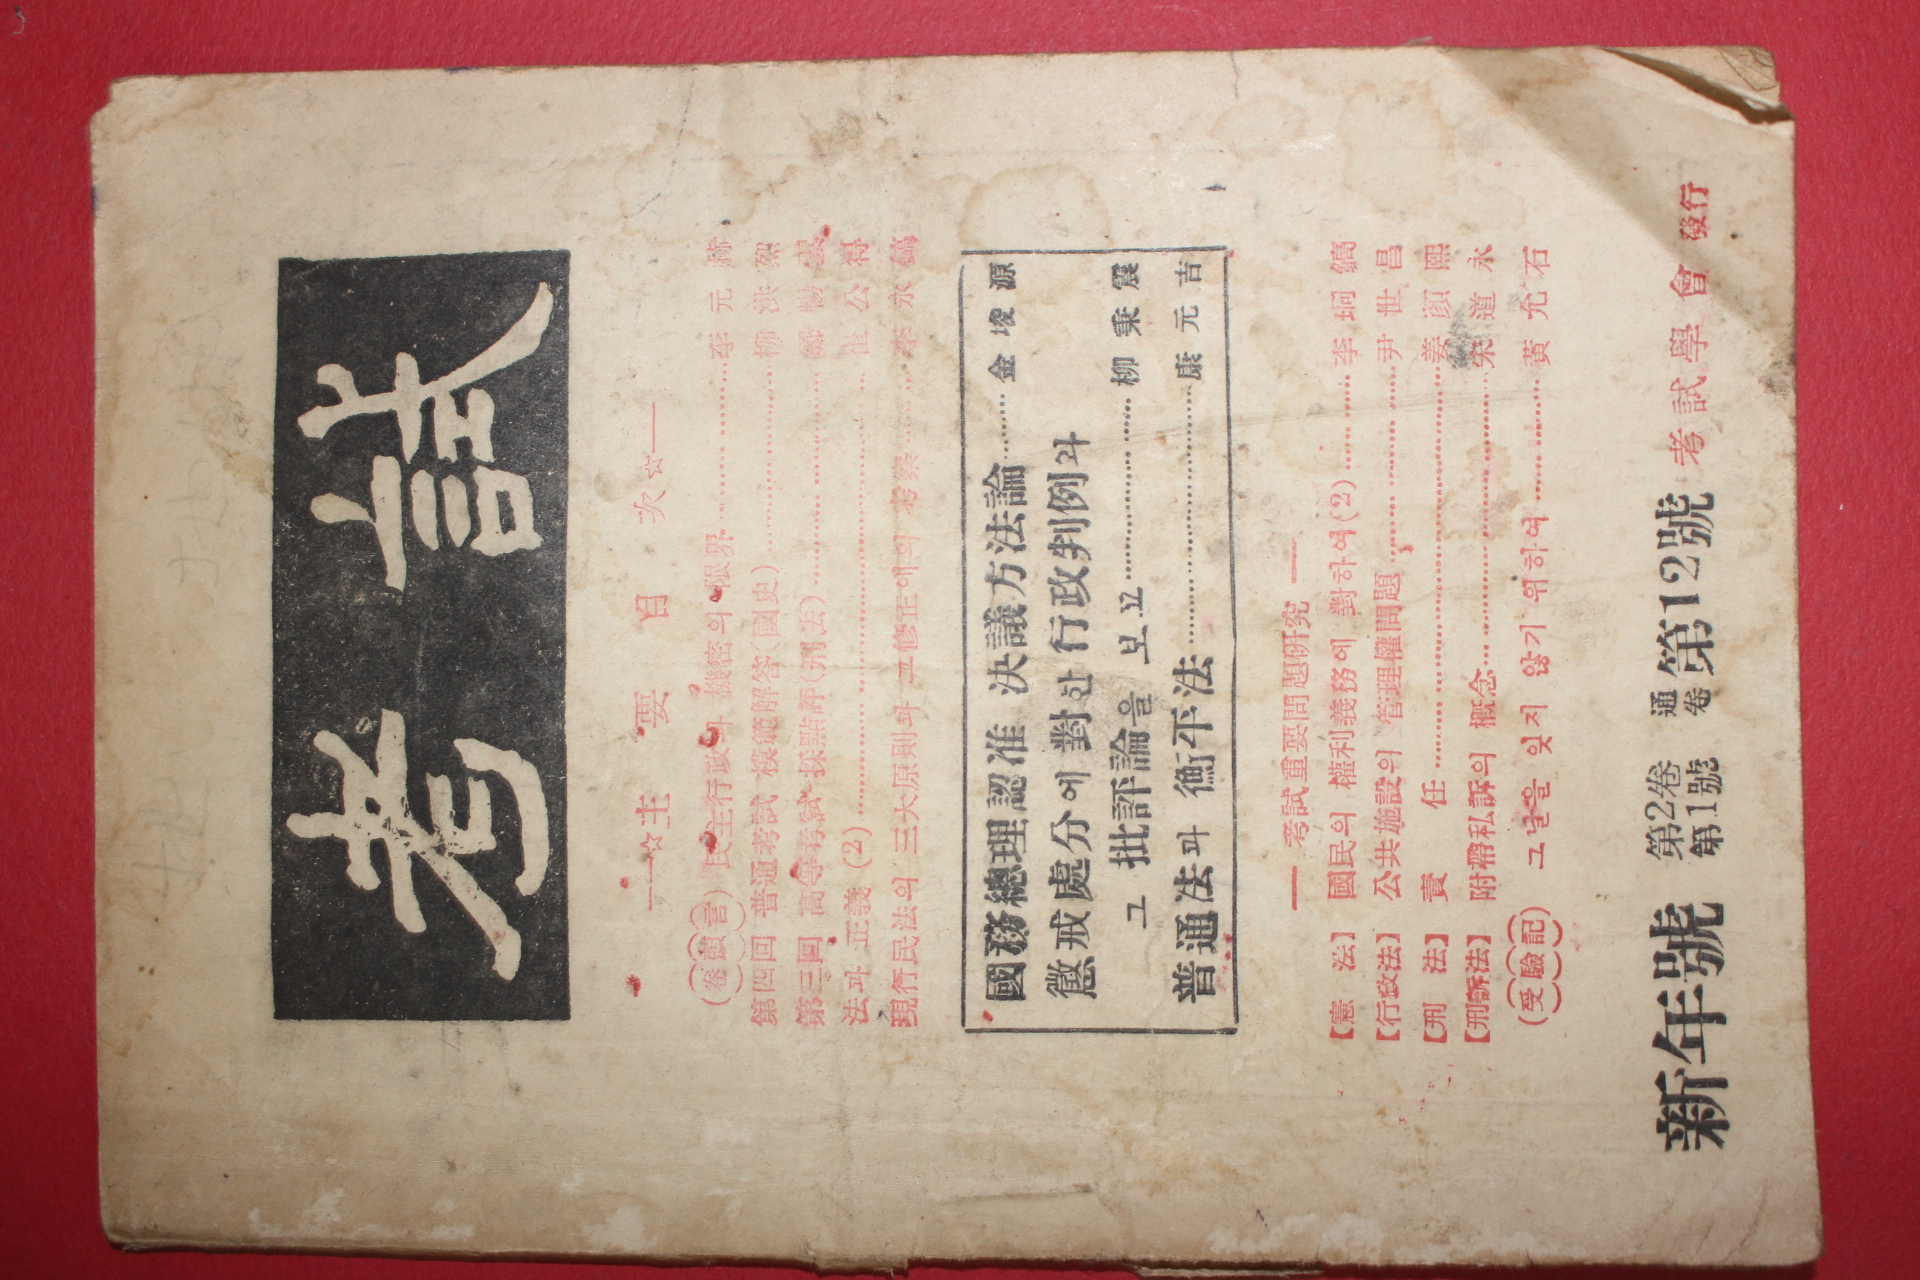 考試
—☆主要目次☆—
(卷頭言) 民主行政과 機密의 限界 …… 李元
第四回 普通考試 模範解答(國史) …… 柳洪烈
第三回 高等考試 採點評(刑法) …… 鄭暢雲
法과 正義 (2) …… 崔公得
現行民法의 三大原則과 그 修正에의 考察 …… 李永鎬
國務總理認准 決議方法論 …… 金埈源
懲戒處分에 對한 行政判例와
그 批評論을 보고 …… 柳秉震
普通法과 衡平法 …… 康元吉
— 考試重要問題研究 —
【憲 法】 國民의 權利義務에 對하여(2) …… 李坰鎬
【行政法】 公共施設의 管理權問題 …… 尹世昌
【刑 法】 責 任 …… 姜顔熙
【刑訴法】 附帶私訴의 概念 …… 宋道永
(受驗記) 그날을 잊지 않기 위하여 …… 黃允石
新年號 第2卷 第1號 通卷 第12號 考試學會 發行